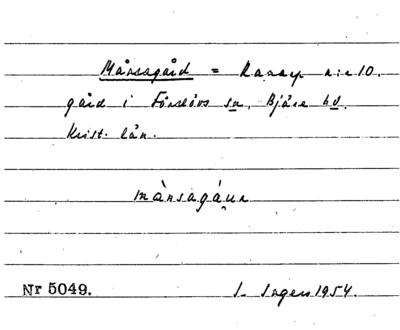 Månsagård = Karup n:r 10.
gård i Förslövs sn, Bjäre hd.
Krist. län.
månsagáun
Nr 5049. S. Ingers 1954.